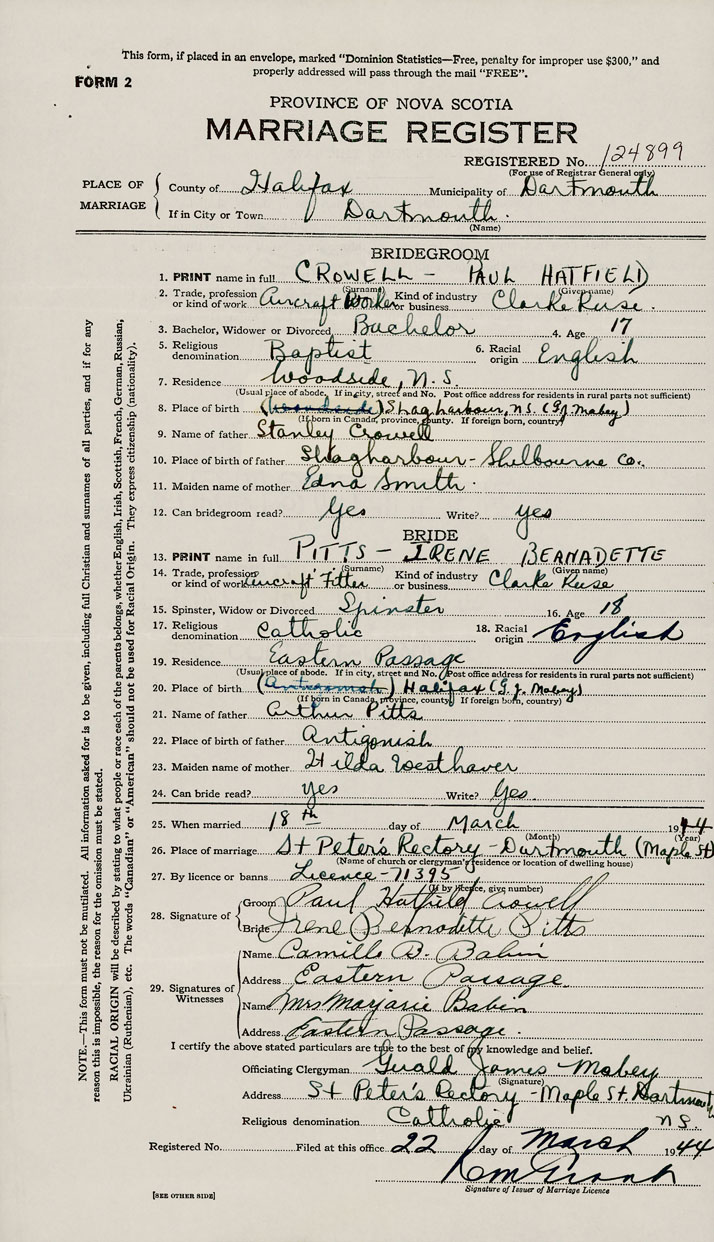 This form, if placed in an envelope, marked "Dominion Statistics—Free, penalty for improper use $300," and
properly addressed will pass through the mail "FREE".
FORM 2
PROVINCE OF NOVA SCOTIA
MARRIAGE REGISTER
REGISTERED No. 124899
(For use of Registrar General only)
PLACE OF MARRIAGE
County of Halifax Municipality of Dartmouth
If in City or Town Dartmouth.
(Name)
BRIDEGROOM
1. PRINT name in full CROWELL - PAUL HATFIELD
(Surname) (Given name)
2. Trade, profession or kind of work Aircraft Worker Kind of industry or business Clarke Ruse.
3. Bachelor, Widower or Divorced Bachelor 4. Age 17
5. Religious denomination Baptist 6. Racial origin English
7. Residence Woodside, N.S.
(Usual place of abode. If in city, street and No. Post office address for residents in rural parts not sufficient)
8. Place of birth (Woodside) Shagharbour, N.S. (G.J. Mabey)
(If born in Canada, province, county. If foreign born, country)
9. Name of father Stanley Crowell
10. Place of birth of father Shagharbour - Shelbourne Co.
11. Maiden name of mother Edna Smith
12. Can bridegroom read? Yes Write? yes
BRIDE
13. PRINT name in full PITTS - IRENE BEANADETTE
(Surname) (Given name)
14. Trade, profession or kind of work Aircraft Fitter Kind of industry or business Clarke Ruse
15. Spinster, Widow or Divorced Spinster 16. Age 18
17. Religious denomination Catholic 18. Racial origin English
19. Residence Eastern Passage
(Usual place of abode. If in city, street and No. Post office address for residents in rural parts not sufficient)
20. Place of birth (Antigonish) Halifax (G.J. Mabey)
(If born in Canada, province, county. If foreign born, country)
21. Name of father Arthur Pitts
22. Place of birth of father Antigonish
23. Maiden name of mother Hilda Westhaver
24. Can bride read? yes Write? Yes
25. When married 18th day of March 1944
(Month) (Year)
26. Place of marriage St Peter's Rectory - Dartmouth (Maple St)
(Name of church or clergyman's residence or location of dwelling house)
27. By licence or banns Licence - 71395
(If by licence, give number)
28. Signature of
Groom Paul Hatfield Crowell
Bride Irene Bernadette Pitts
29. Signatures of Witnesses
Name Camille B. Babin
Address Eastern Passage.
Name Mrs Marjarie Babin
Address Eastern Passage.
I certify the above stated particulars are true to the best of my knowledge and belief.
Officiating Clergyman Gerald James Mabey
(Signature)
Address St Peter's Rectory - Maple St. Dartmouth
Religious denomination Catholic N.S.
Registered No. Filed at this office 22 day of March 1944
Signature of Issuer of Marriage Licence
[SEE OTHER SIDE]
NOTE.—This form must not be mutilated. All information asked for is to be given, including full Christian and surnames of all parties, and if for any
reason this is impossible, the reason for the omission must be stated.
RACIAL ORIGIN will be described by stating to what people or race each of the parents belongs, whether English, Irish, Scottish, French, German, Russian,
Ukrainian (Ruthenian), etc. The words "Canadian" or "American" should not be used for Racial Origin. They express citizenship (nationality).